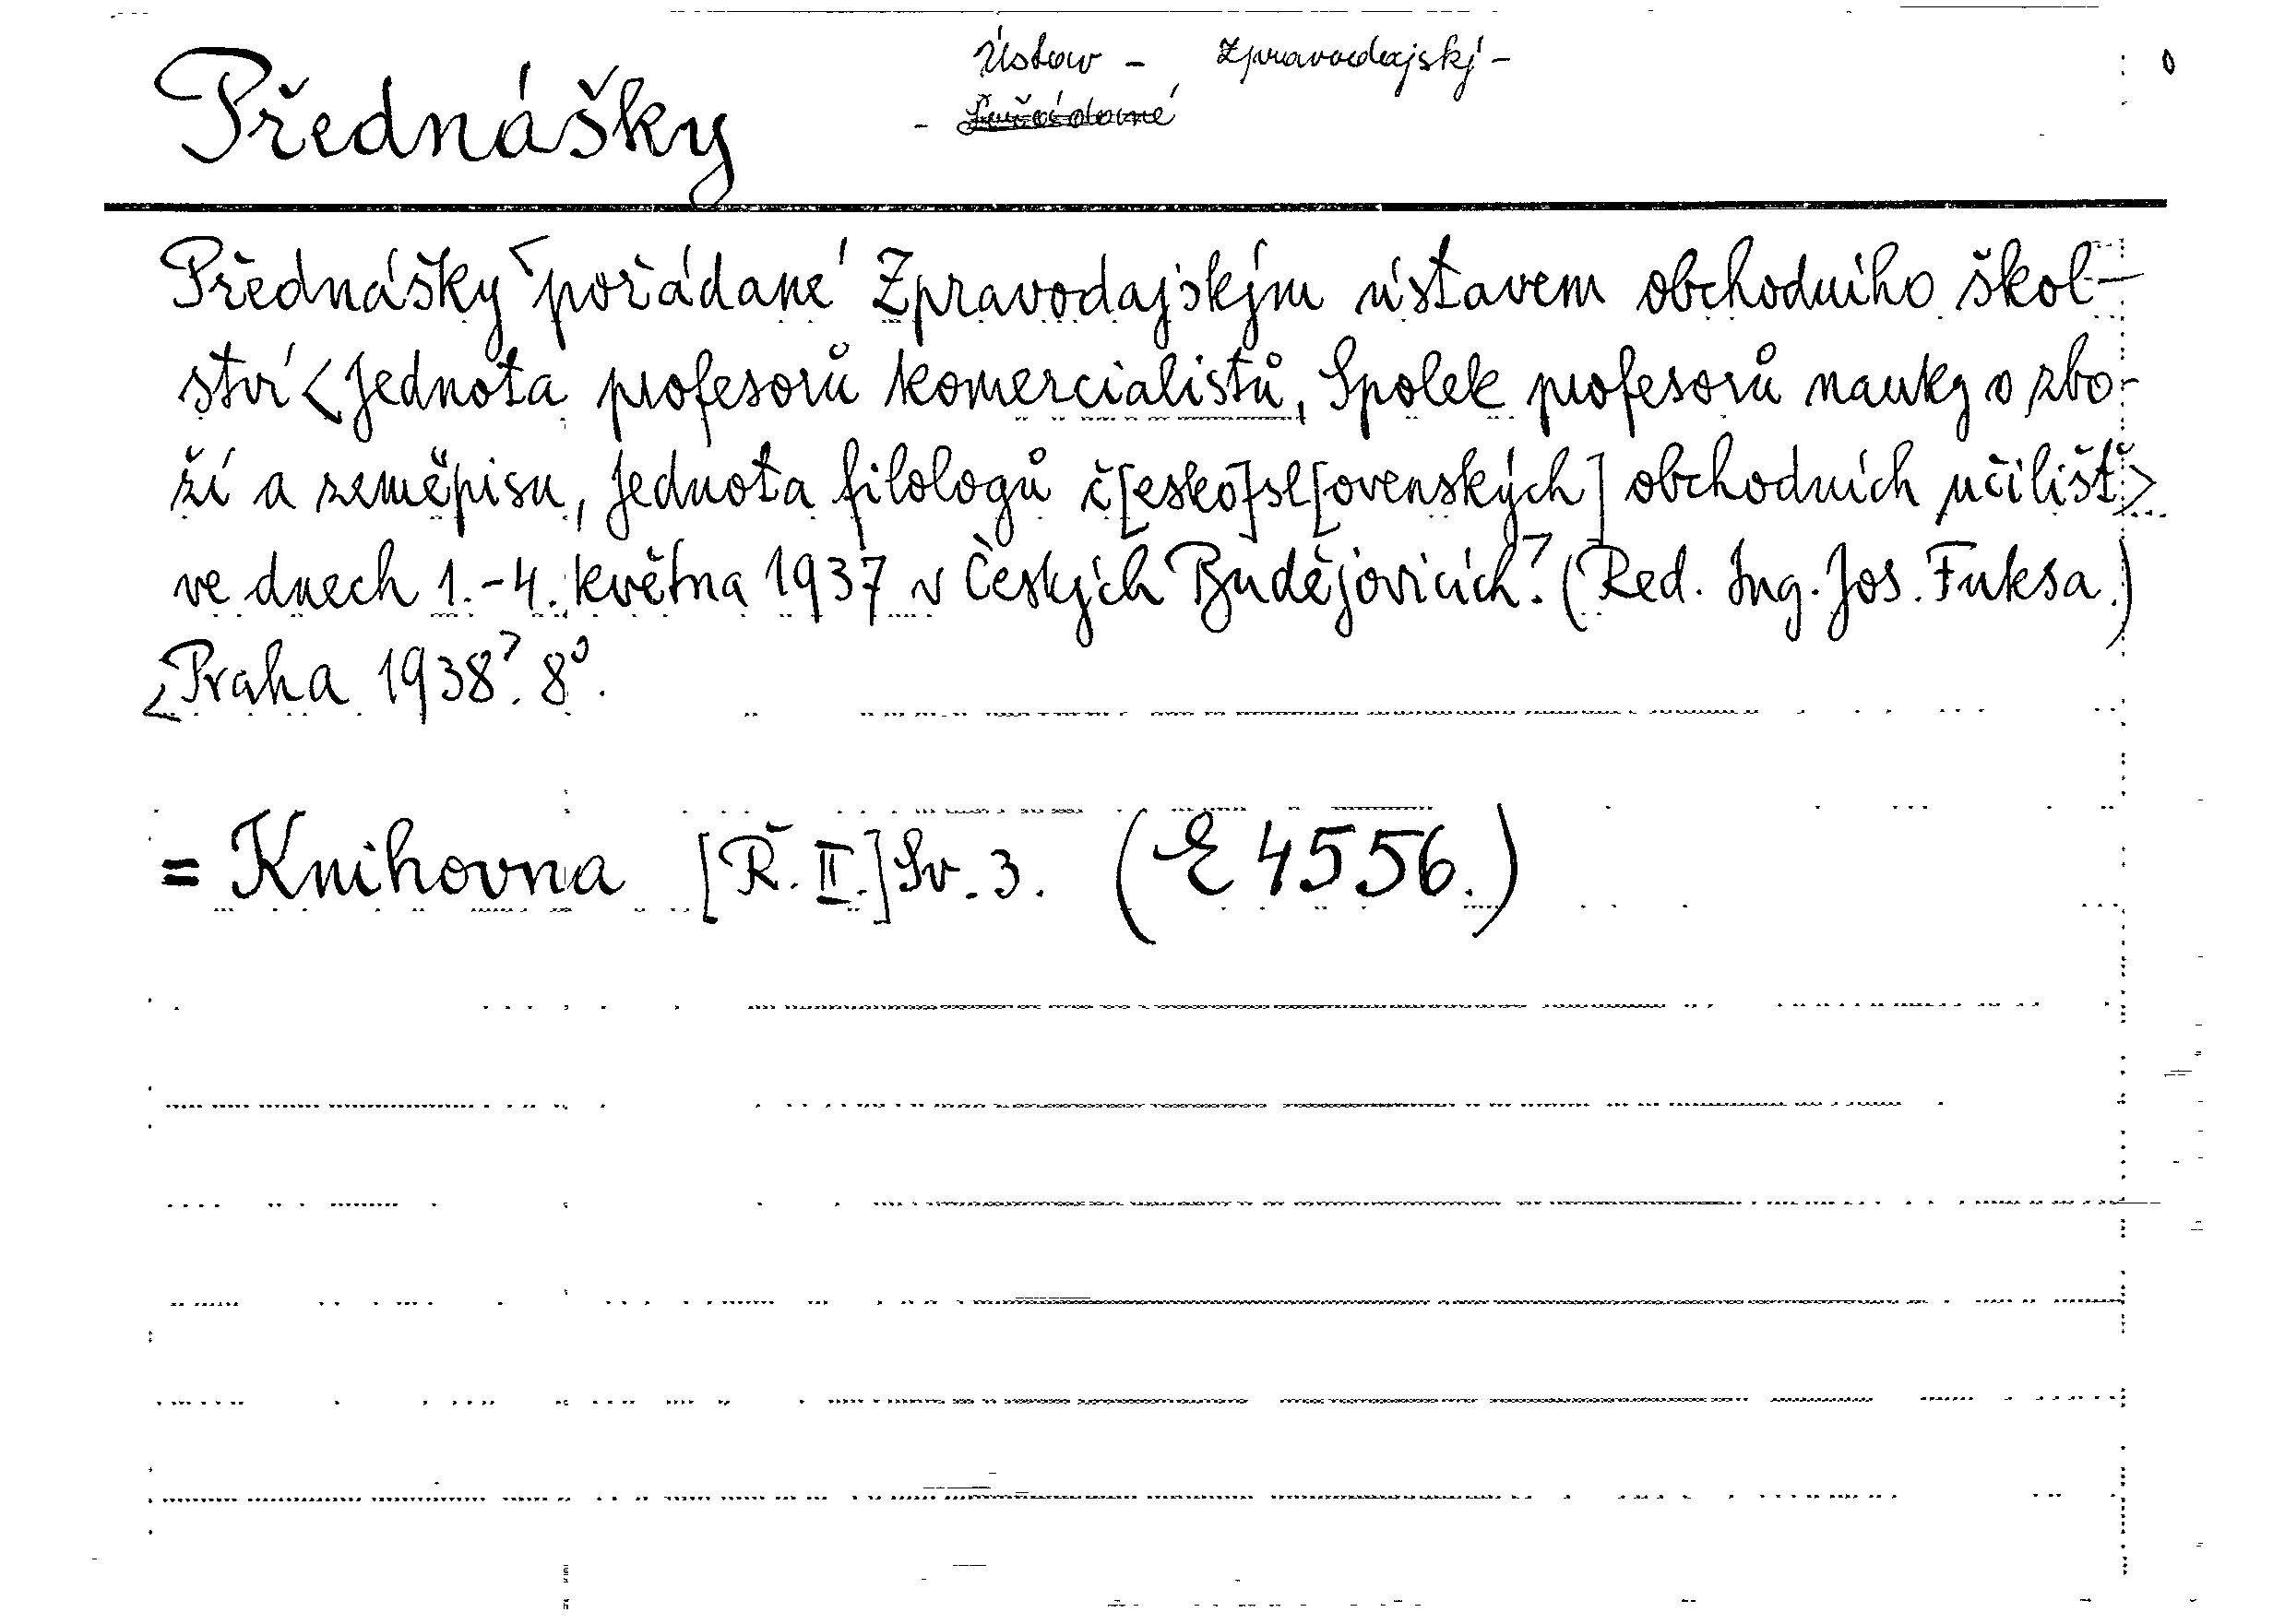 Ústav - Zpravodajský -
Přednášky
Přednášky <pořádané Zpravodajským ústavem obchodního škol-
ství <Jednota profesorů komercialistů, Spolek profesorů nauky o zbo-
ží a zeměpisu, Jednota filologů č[esko]sl[ovenských] obchodních učilišť>
ve dnech 1.-4. května 1937 v Českých Budějovicích>. (Red. Ing. Jos. Fuksa.)
<Praha 1938>. 8°.
= Knihovna [Ř. II.] Sv. 3. (E 4556.)